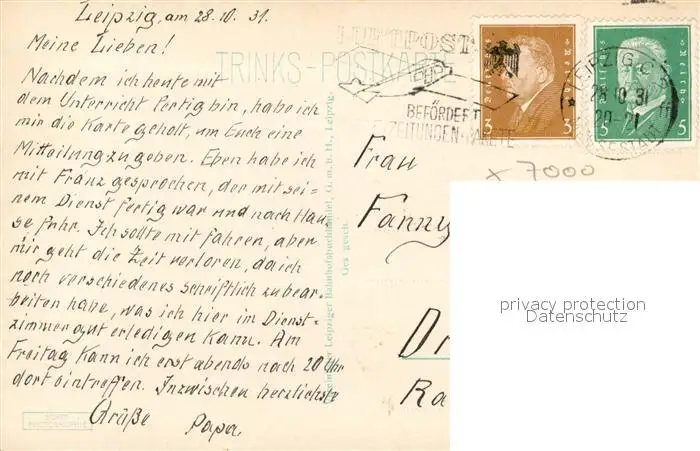 Leipzig, am 28.10.31.
Meine Lieben!
Nachdem ich heute mit
dem Unterricht fertig bin, habe ich
mir die Karte geholt, um Euch eine
Mitteilung zu geben. Eben habe ich
mit Franz gesprochen, der mit sei-
nem Dienst fertig war und nach Hau-
se fuhr. Ich sollte mit fahren, aber
mir geht die Zeit verloren, da ich
noch verschiedenes schriftlich zu bear-
beiten habe, was ich hier im Dienst-
zimmer gut erledigen kann. Am
Freitag kann ich erst abends nach 20 Uhr
dort eintreffen. Inzwischen herzlichste
Grüße Papa
TRINKS-POSTKARTE
LUFTPOST
BEFÖRDERT
ZEITUNGEN PAKETE
Deutsches Reich
3 3
Deutsches Reich
5 5
LEIPZIG C
28.10.31
20-21
MESSESTADT
Leipziger Bahnhofsbuchhandel, G. m. b. H., Leipzig.
Ges. gesch.
x 7000
Frau
Fanny
Dr
Ra
privacy protection
Datenschutz
PHOTOGRAPHIE